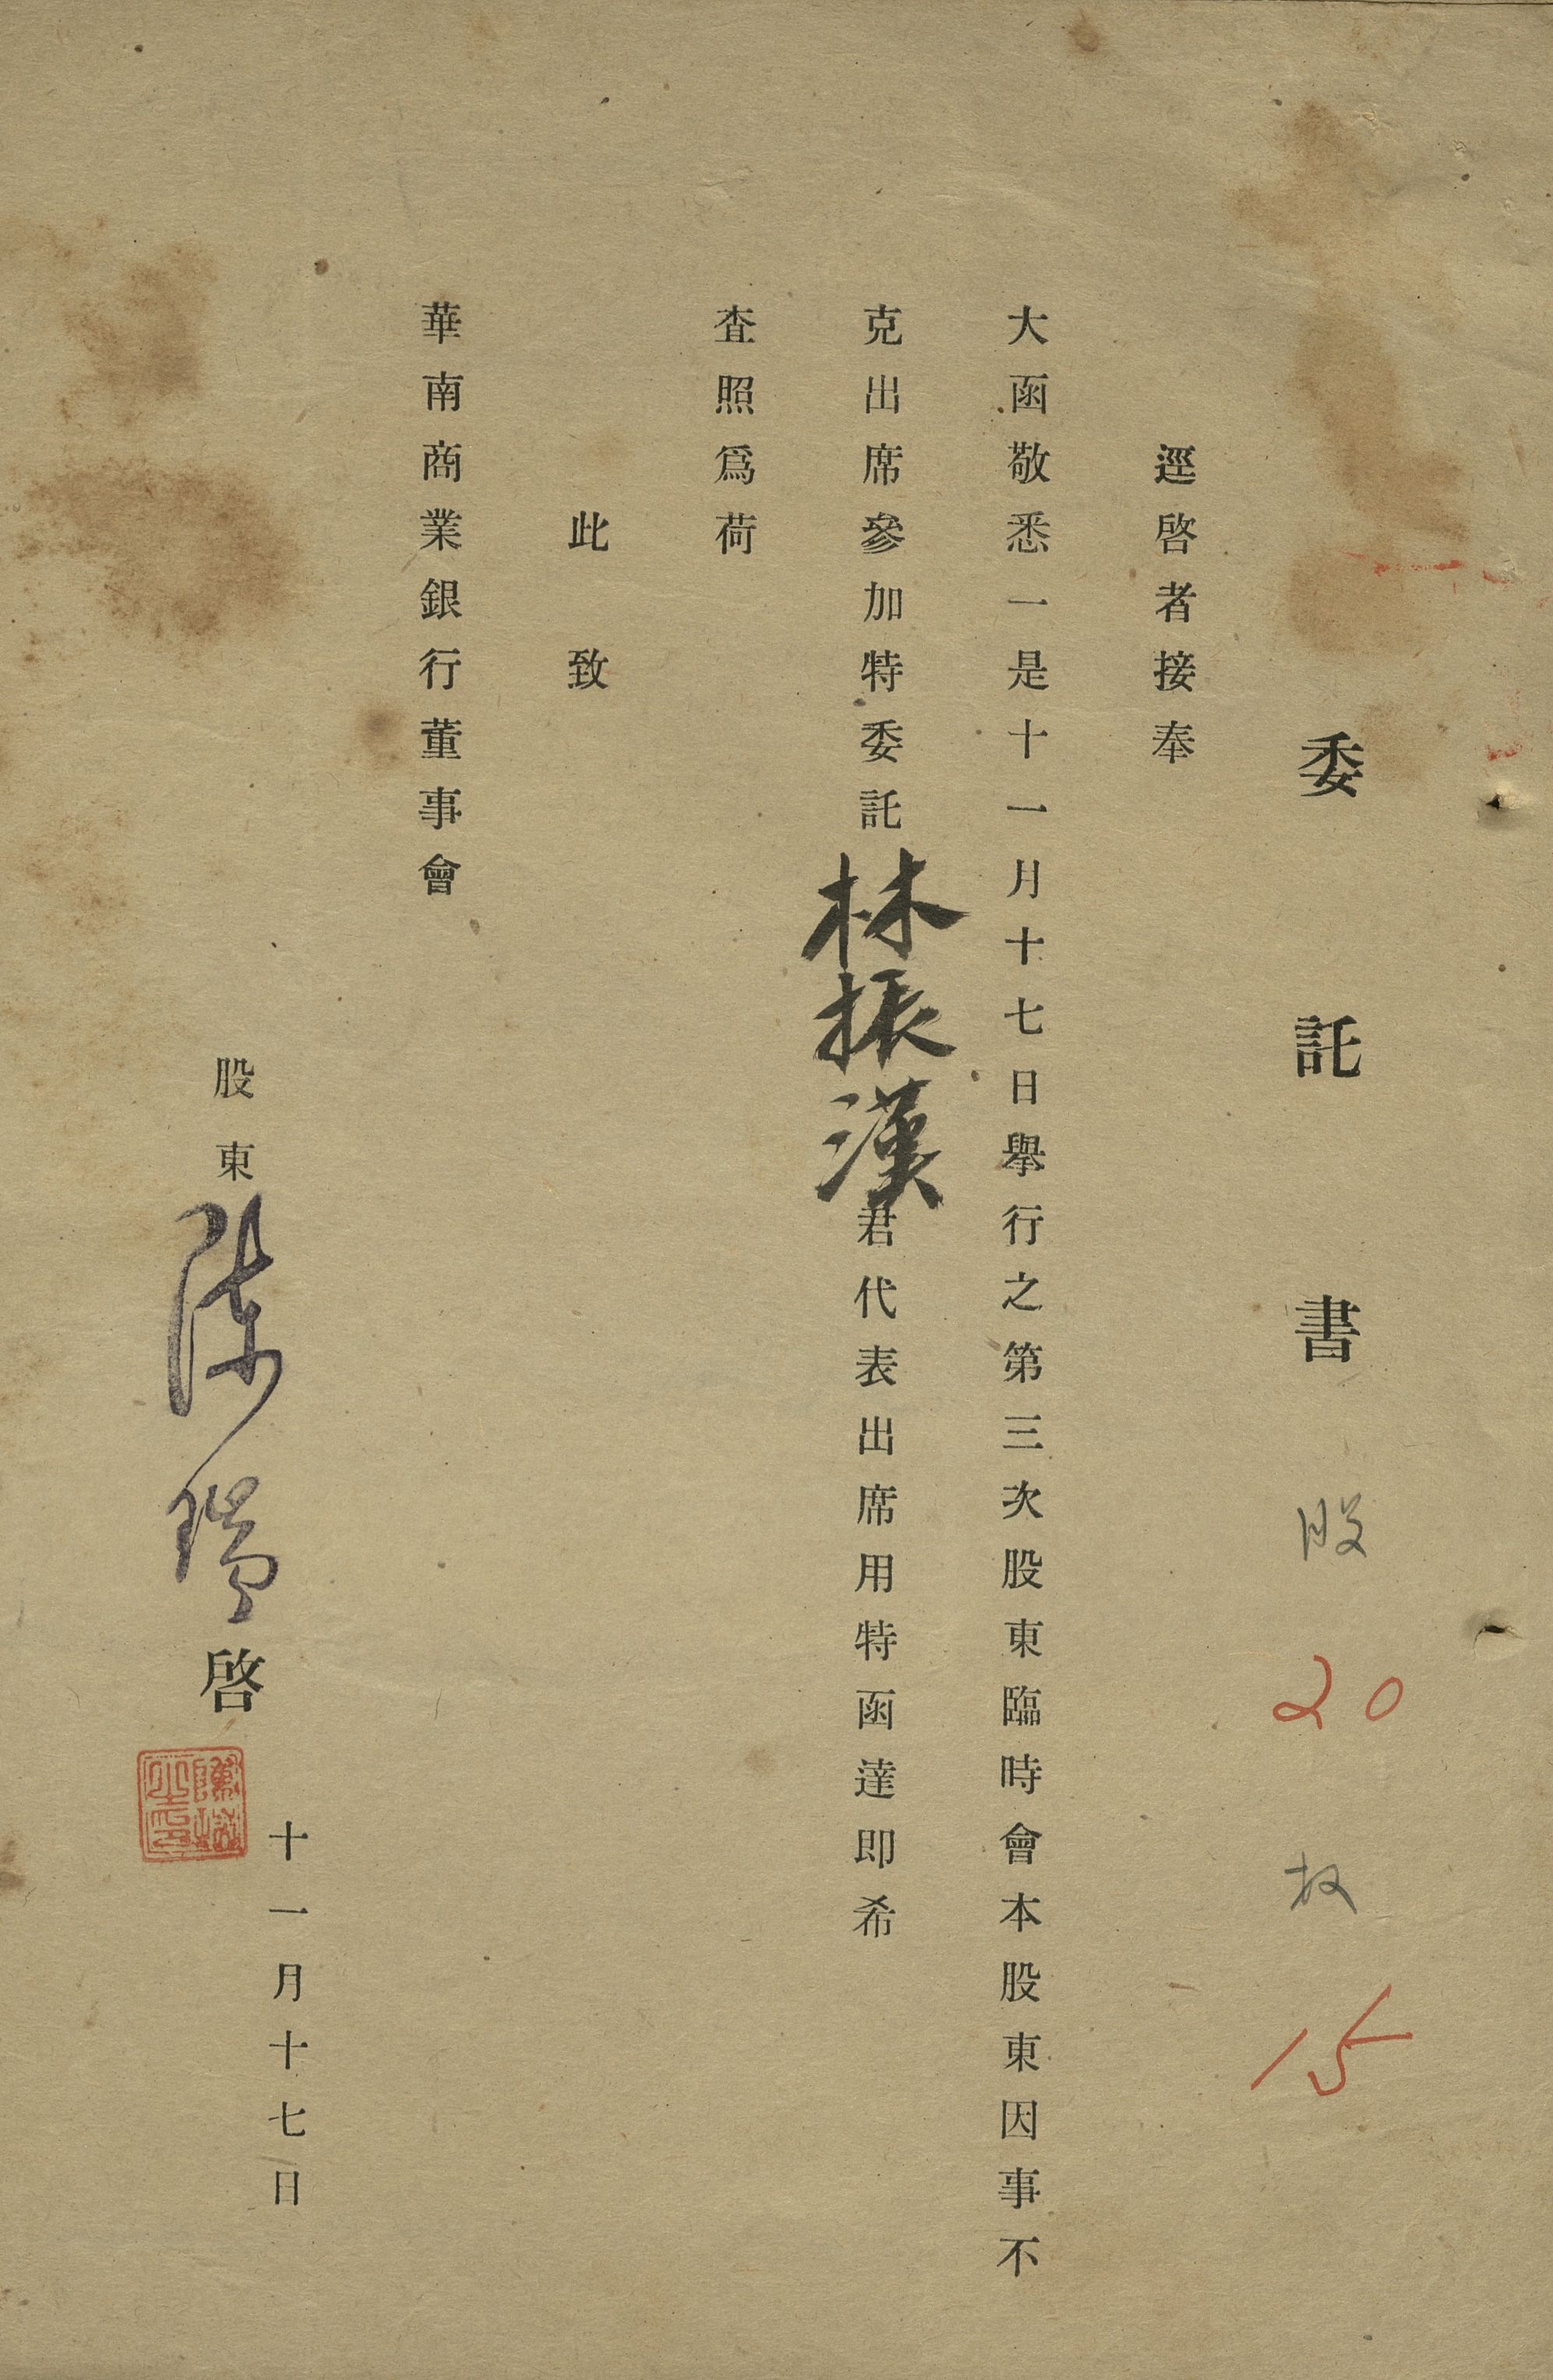 委託書 股 20 权 15
逕啓者接奉
大函敬悉一是十一月十七日舉行之第三次股東臨時會本股東因事不
克出席參加特委託林振漢君代表出席用特函達即希
查照爲荷
此致
華南商業銀行董事會
股東陈瑞啓
十一月十七日